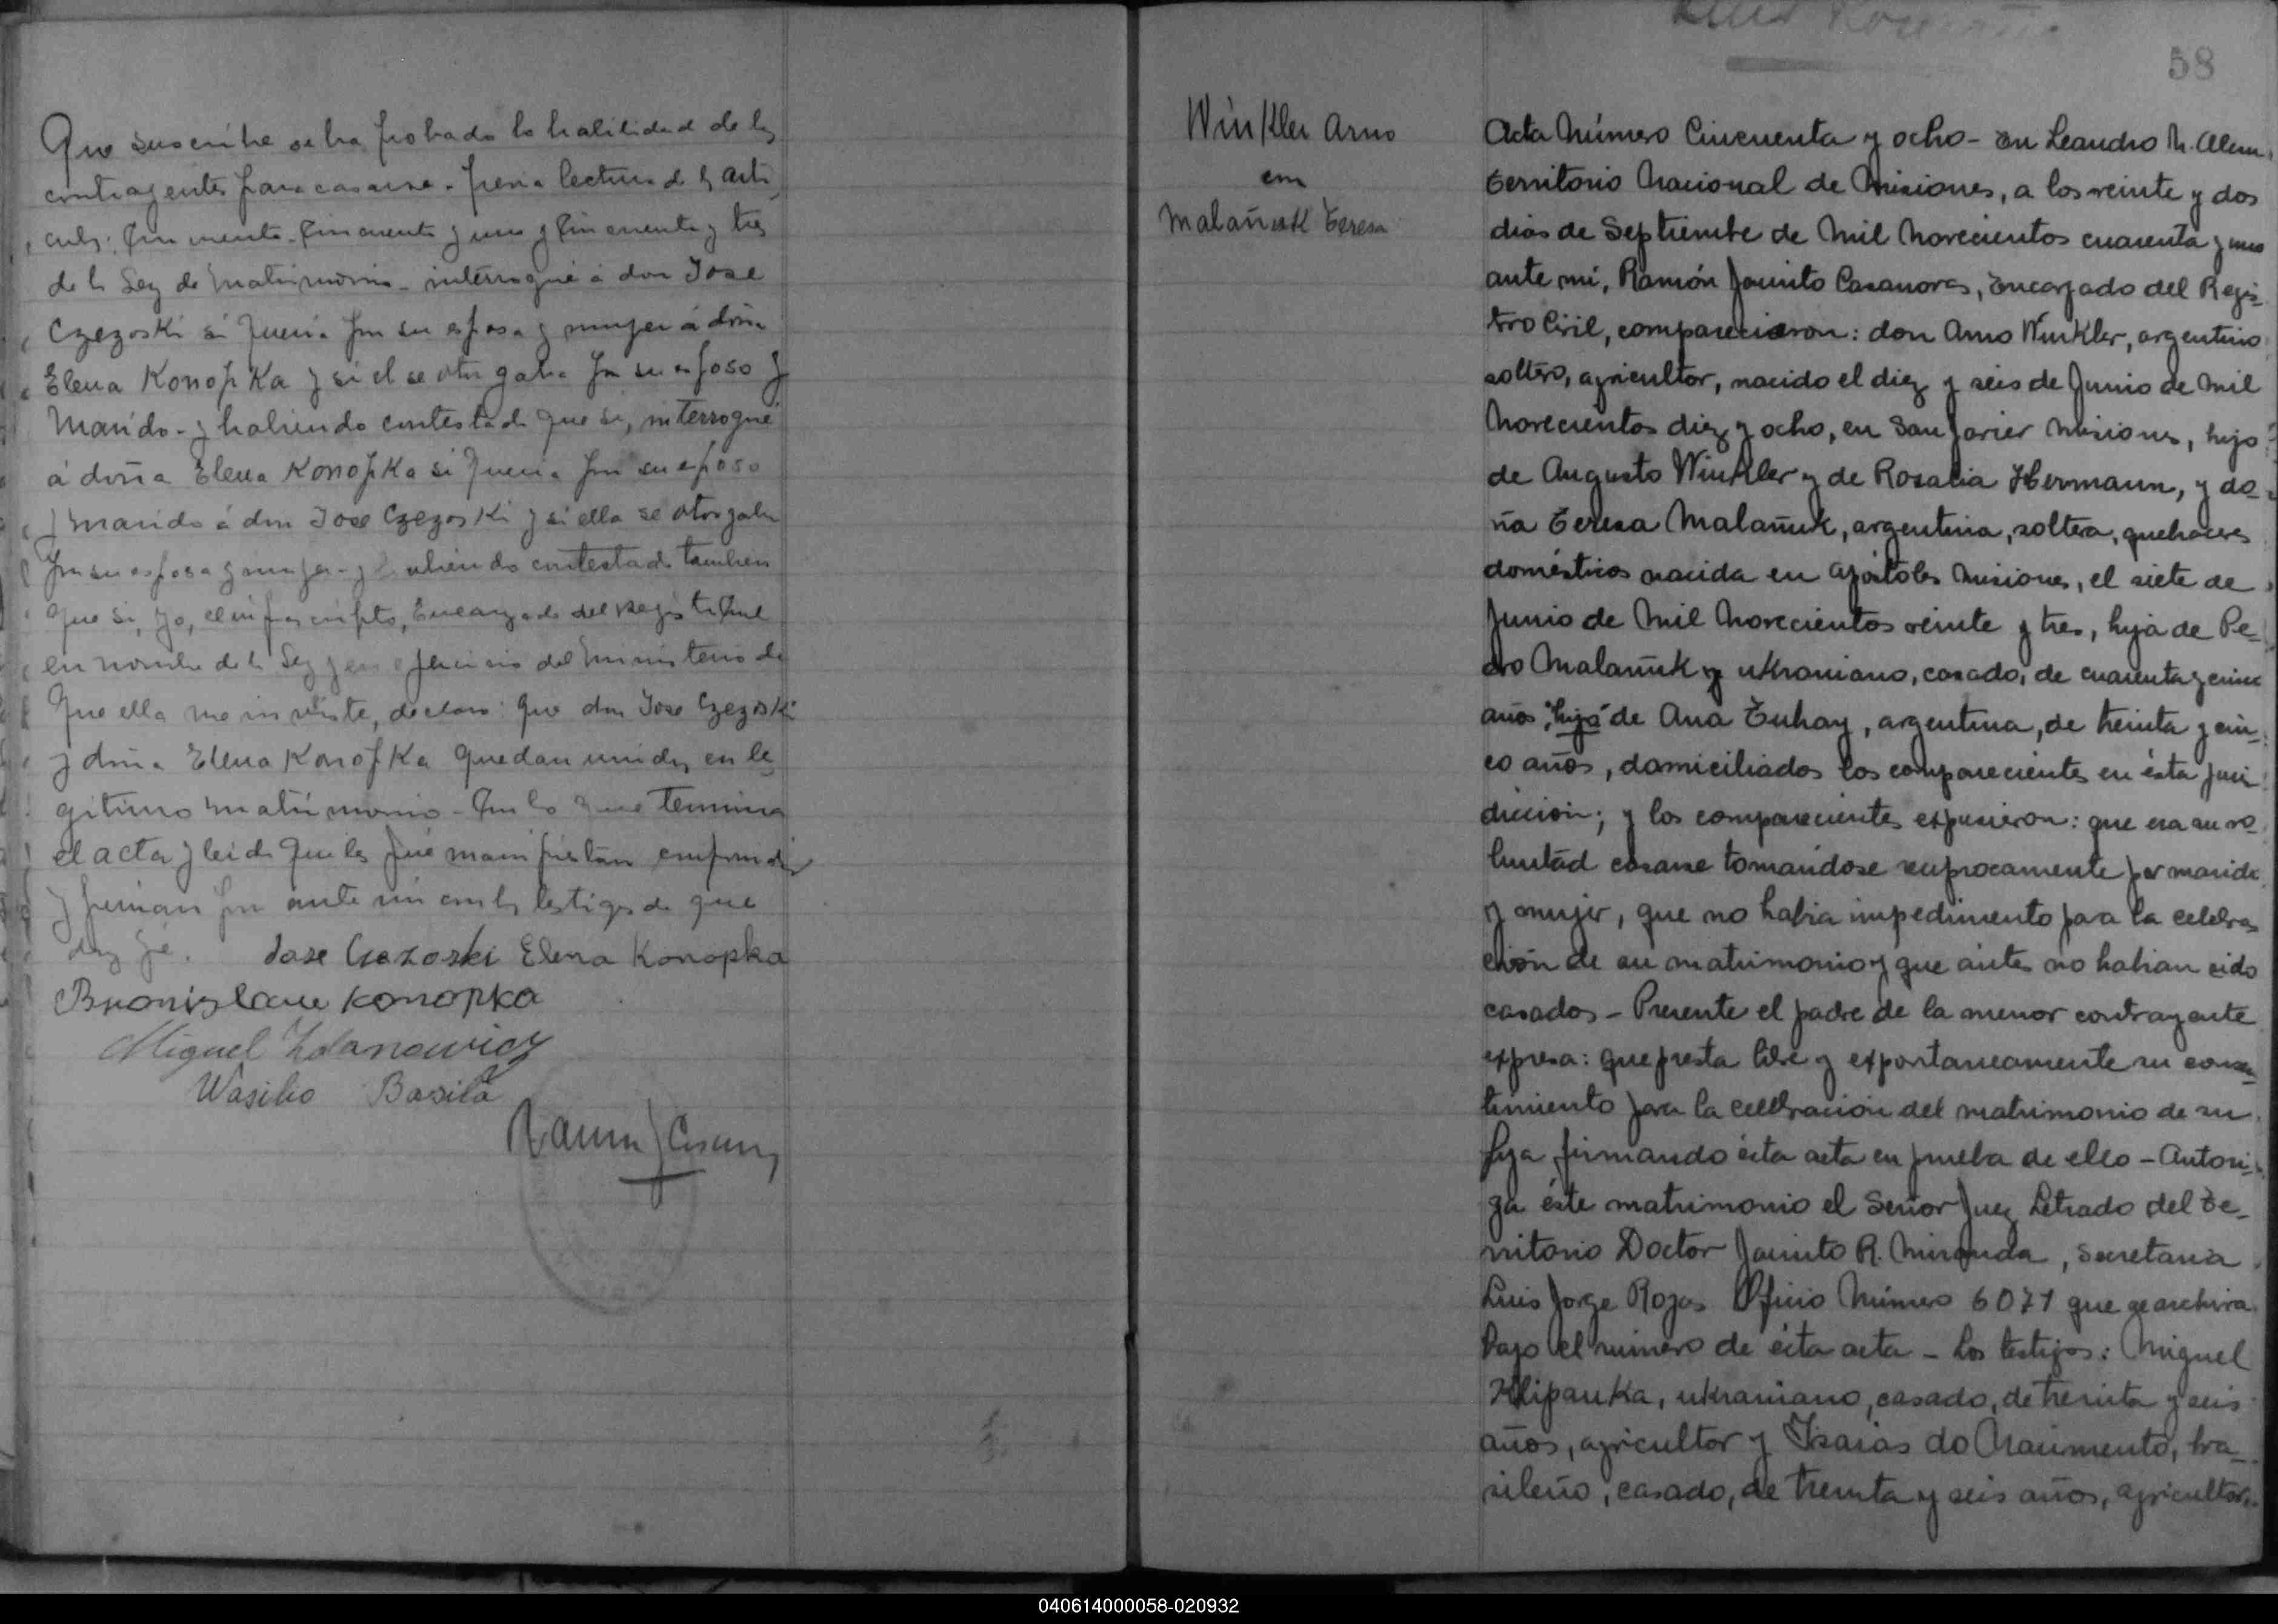 Que suscribe se ha probado la habilidad de los
contrayentes para casarse. previa lectura de los arti
culos: Cincuenta. Cincuenta y uno y Cincuenta y tres
de la Ley de Matrimonio. interrogué á don Jose
Czezoski si queria por su esposa y mujer á doña
Elena Konopka y si el se otorgaba por su esposo y
Marido. y habiendo contestado que si, interrogué
á doña Elena Konopka si queria por su esposo
y marido á don Jose Czezoski y si ella se otorgaba
por su esposa y mujer. y habiendo contestado tambien
que si, yo, el infrascripto, Encargado del Registro Civil
en nombre de la Ley y en ejercicio del Ministerio de
Que ella me inviste, declaro: que don Jose Czezoski
y doña Elena Konopka quedan unidos en le
gitimo matrimonio. Con lo que termina
el acta y leida que les fué manifiestan conformidad
y firman por ante mi con los testigos de que
doy fé. Jose Czezoski Elena Konopka
Bronislava Konopka
Miguel Zdanowicz
Wasilio Basila
Ramón J Casanovas
58
Winkler Arno
con
Malañuk Teresa
Acta Número Cincuenta y ocho - En Leandro N. Alem
Territorio Nacional de Misiones, a los veinte y dos
dias de Septiembre de Mil Novecientos cuarenta y uno
ante mí, Ramón Jacinto Casanovas, Encargado del Regis-
tro Civil, comparecieron: don Arno Winkler, argentino
soltero, agricultor, nacido el diez y seis de Junio de Mil
Novecientos diez y ocho, en San Javier Misiones, hijo
de Augusto Winkler y de Rosalia Hermann, y do-
ña Teresa Malañuk, argentina, soltera, quehaceres
domésticos nacida en Apóstoles Misiones, el siete de
Junio de Mil Novecientos veinte y tres, hija de Pe-
dro Malañuk y ukraniano, casado, de cuarenta y cinco
años, "hija" de Ana Tuhay, argentina, de treinta y cin-
co años, domiciliados los comparecientes en ésta juris
dicción; y los comparecientes expusieron: que era su vo-
luntad casarse tomandose reciprocamente por marido
y mujer, que no habia impedimento para la celebra
ción de su matrimonio y que antes no habian sido
casados - Presente el padre de la menor contrayente
expresa: que presta libre y espontaneamente su consen-
timiento para la celebración del matrimonio de su
hija firmando ésta acta en prueba de ello - Autori-
za éste matrimonio el Señor Juez Letrado del Te-
rritorio Doctor Jacinto R. Miranda, Secretaria
Luis Jorge Rojas Oficio Número 6071 que se archiva
bajo el número de ésta acta - Los testigos: Miguel
Klipauka, ukraniano, casado, de treinta y seis
años, agricultor y Isaias do Nacimento, bra-
sileño, casado, de treinta y seis años, agricultor,
040614000058-020932